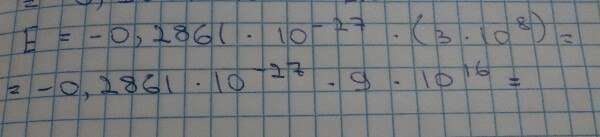 E = -0,2861 · 10⁻²⁷ · (3 · 10⁸) =
= -0,2861 · 10⁻²⁷ · 9 · 10¹⁶ =